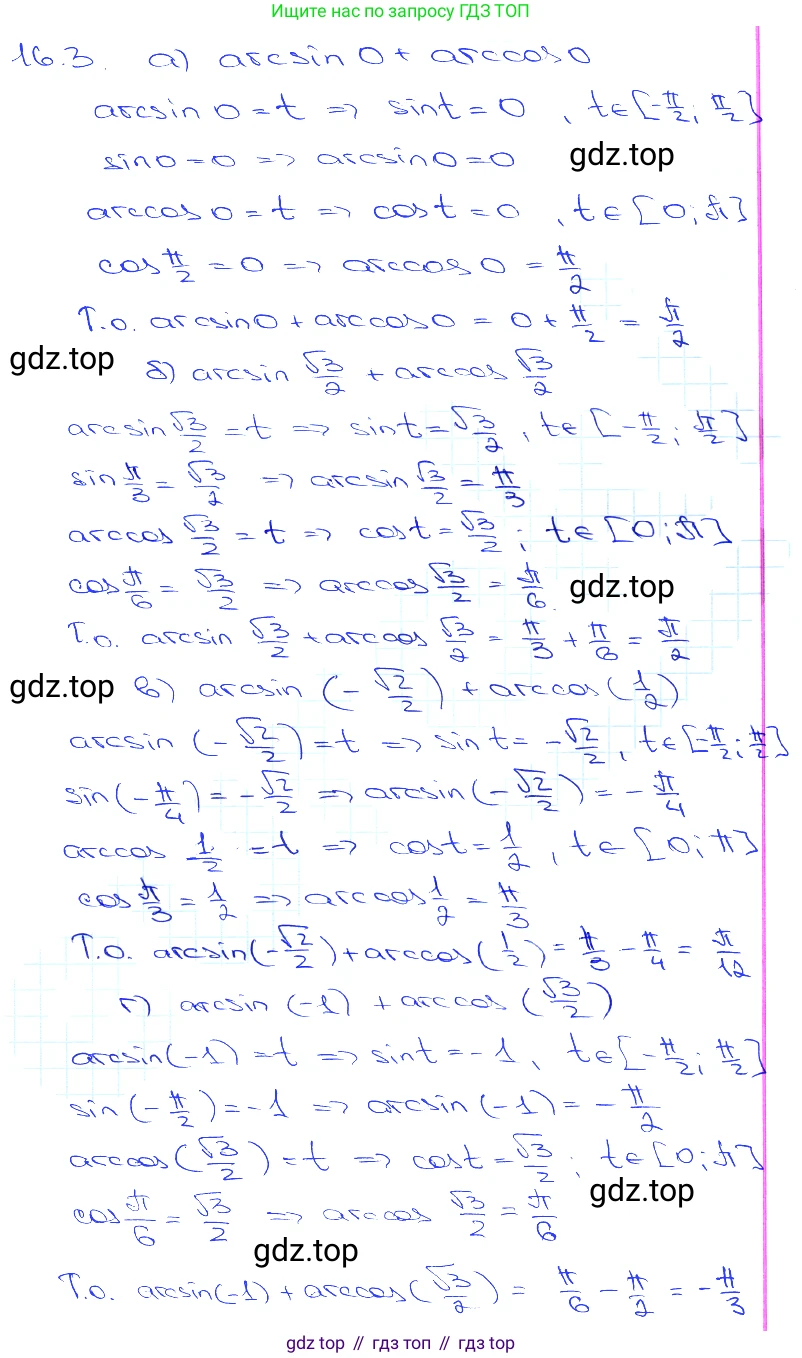 Ищите нас по запросу ГДЗ ТОП
16.3. а) arcsin 0 + arccos 0
arcsin 0 = t => sin t = 0, t ∈ [-π/2; π/2]
sin 0 = 0 => arcsin 0 = 0
gdz.top
arccos 0 = t => cos t = 0, t ∈ [0; π]
cos π/2 = 0 => arccos 0 = π/2
Т.о. arcsin 0 + arccos 0 = 0 + π/2 = π/2
gdz.top
б) arcsin √3/2 + arccos √3/2
arcsin √3/2 = t => sin t = √3/2, t ∈ [-π/2; π/2]
sin π/3 = √3/2 => arcsin √3/2 = π/3
arccos √3/2 = t => cos t = √3/2; t ∈ [0; π]
cos π/6 = √3/2 => arccos √3/2 = π/6.
gdz.top
Т.о. arcsin √3/2 + arccos √3/2 = π/3 + π/6 = π/2
gdz.top
в) arcsin (-√2/2) + arccos (1/2)
arcsin (-√2/2) = t => sin t = -√2/2, t ∈ [-π/2; π/2]
sin (-π/4) = -√2/2 => arcsin (-√2/2) = -π/4
arccos 1/2 = t => cos t = 1/2, t ∈ [0; π]
cos π/3 = 1/2 => arccos 1/2 = π/3
Т.о. arcsin (-√2/2) + arccos (1/2) = π/3 - π/4 = π/12
г) arcsin (-1) + arccos (√3/2)
arcsin (-1) = t => sin t = -1, t ∈ [-π/2; π/2]
sin (-π/2) = -1 => arcsin (-1) = -π/2
arccos (√3/2) = t => cos t = √3/2; t ∈ [0; π]
gdz.top
cos π/6 = √3/2 => arccos √3/2 = π/6
gdz.top
Т.о. arcsin (-1) + arccos (√3/2) = π/6 - π/2 = -π/3
gdz top // гдз топ // gdz top